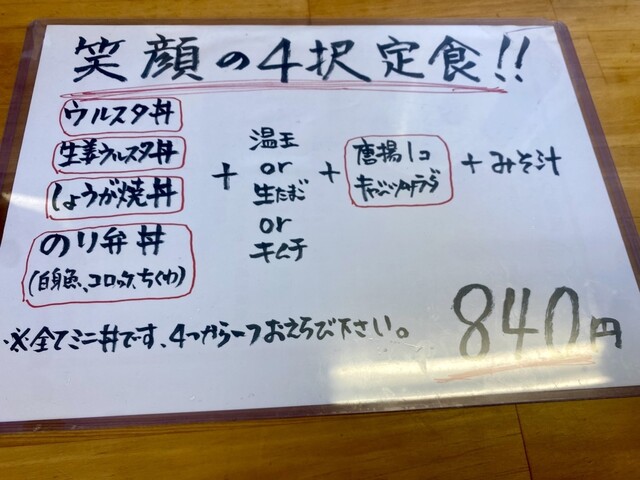 笑顔の4択定食!!
ウルスタ丼
生姜ウルスタ丼
しょうが焼丼
のり弁丼
(白身魚、コロッケ、ちくわ)
+
温玉
or
生たまご
or
キムチ
+
唐揚1コ
キャベツサラダ
+みそ汁
※全てミニ丼です、4つから一つおえらび下さい。
840円